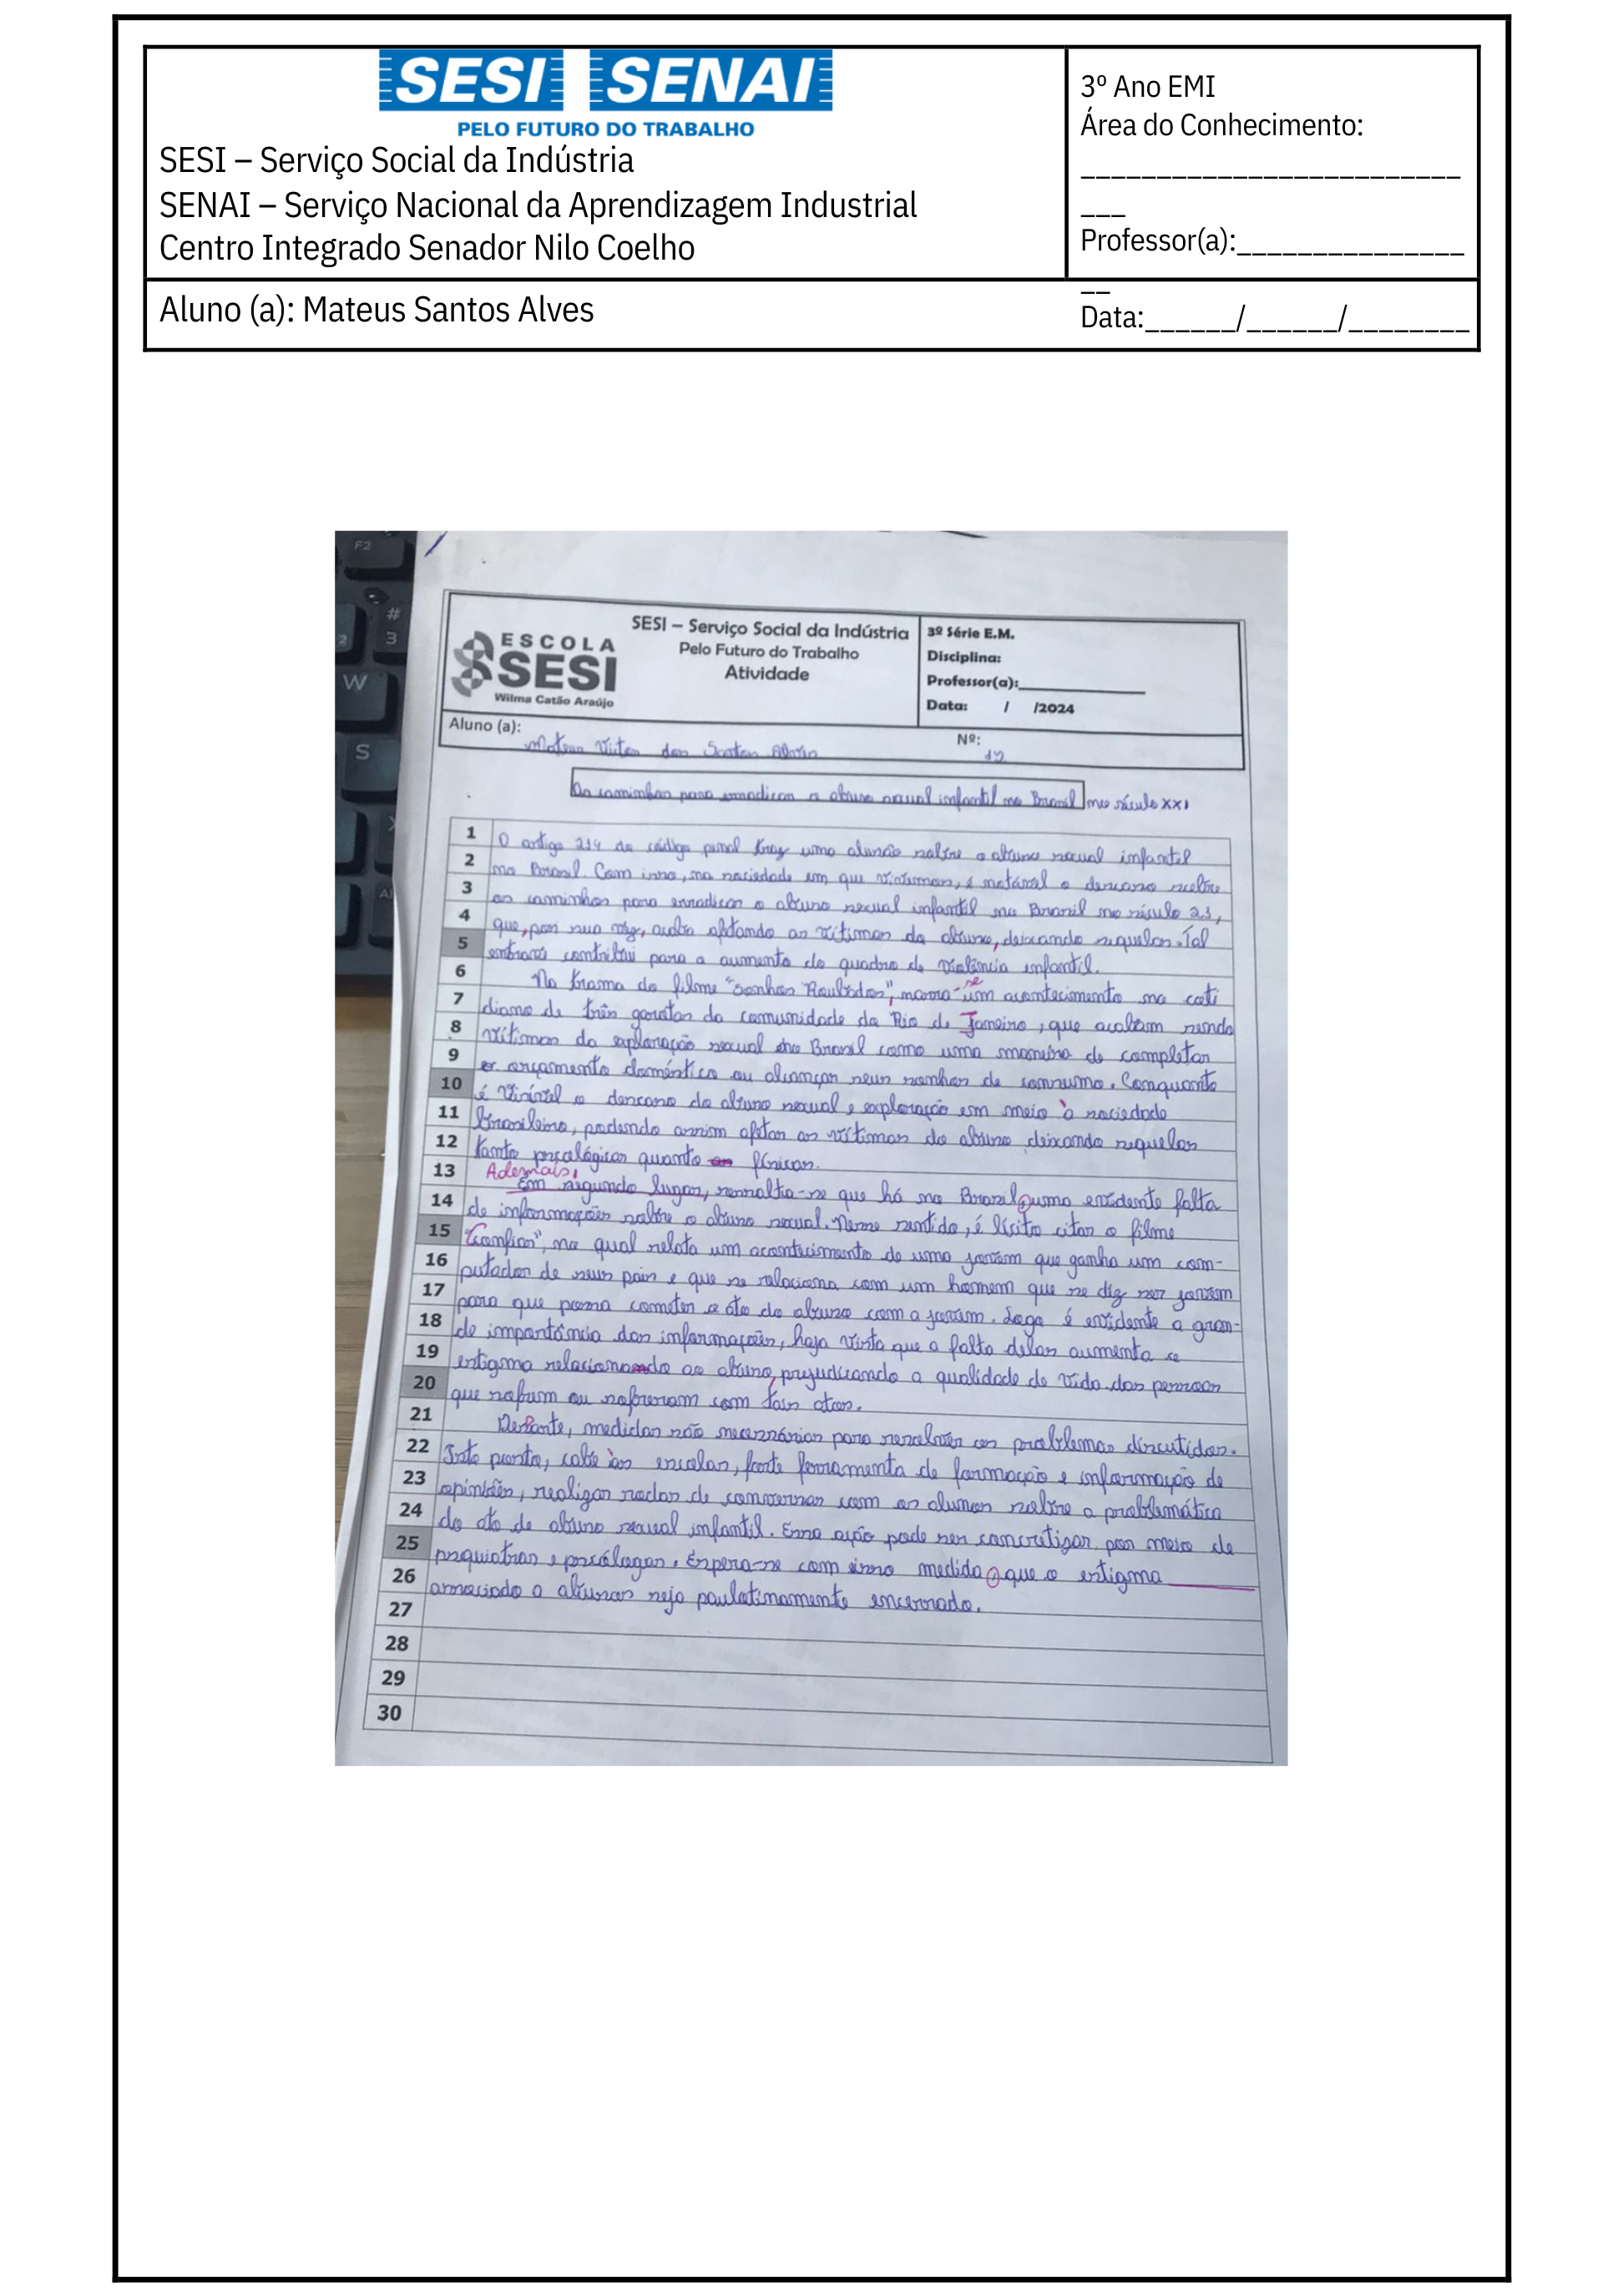 SESI SENAI
PELO FUTURO DO TRABALHO
SESI – Serviço Social da Indústria
SENAI – Serviço Nacional da Aprendizagem Industrial
Centro Integrado Senador Nilo Coelho
3º Ano EMI
Área do Conhecimento:
_________________________
___
Professor(a):_______________
__
Data:______/______/________
Aluno (a): Mateus Santos Alves
F2
#
3
2
W
S
ESCOLA
SESI
Wilma Catão Araújo
SESI – Serviço Social da Indústria
Pelo Futuro do Trabalho
Atividade
3º Série E.M.
Disciplina:
Professor(a):
Data: / /2024
Aluno (a): Mateus Victor dos Santos Alves
Nº: 19
Os caminhos para erradicar o abuso sexual infantil no Brasil no século XXI
1 O artigo 214 do código penal traz uma alusão sobre o abuso sexual infantil
2 no Brasil. Com isso, na sociedade em que vivemos, é notável o descaso sobre
3 os caminhos para erradicar o abuso sexual infantil no Brasil no século 21,
4 que, por sua vez, acaba afetando as vítimas do abuso, deixando sequelas. Tal
5 entrave contribui para a aumento do quadro de violência infantil.
6 Na trama do filme "Sonhos Roubados", narra-se um acontecimento no coti
7 diano de três garotas da comunidade da Rio de Janeiro, que acabam sendo
8 vítimas da exploração sexual no Brasil como uma maneira de completar
9 o orçamento doméstico ou alcançar seus sonhos de consumo. Conquanto
10 é visível o descaso do abuso sexual e exploração em meio à sociedade
11 Brasileira, podendo assim afetar as vítimas do abuso deixando sequelas
12 tanto psicológicas quanto físicas.
13 Ademais,
Em segundo lugar, ressalta-se que há no Brasil, uma evidente falta
14 de informações sobre o abuso sexual. Nesse sentido, é lícito citar o filme
15 "Confiar", no qual relata um acontecimento de uma jovem que ganha um com-
16 putador de seus pais e que se relaciona com um homem que se diz ser jovem
17 para que possa cometer o ato do abuso com a jovem. Logo é evidente a gran-
18 de importância das informações, haja vista que a falta delas aumenta o
19 estigma relacionado ao abuso, prejudicando a qualidade de vida das pessoas
20 que sofrem ou sofreram com tais atos.
21 medidas são necessárias para resolver os problemas discutidos.
22 Isto posto, cabe às escolas, forte ferramenta de formação e informação de
23 opiniões, realizar rodas de conversas com os alunos sobre a problemática
24 do ato de abuso sexual infantil. Essa ação pode ser concretizar por meio de
25 psquiatras e psicólogas. Espera-se com isso medida, que o estigma
26 associado a abusos seja paulatinamente encerrado.
27
28
29
30